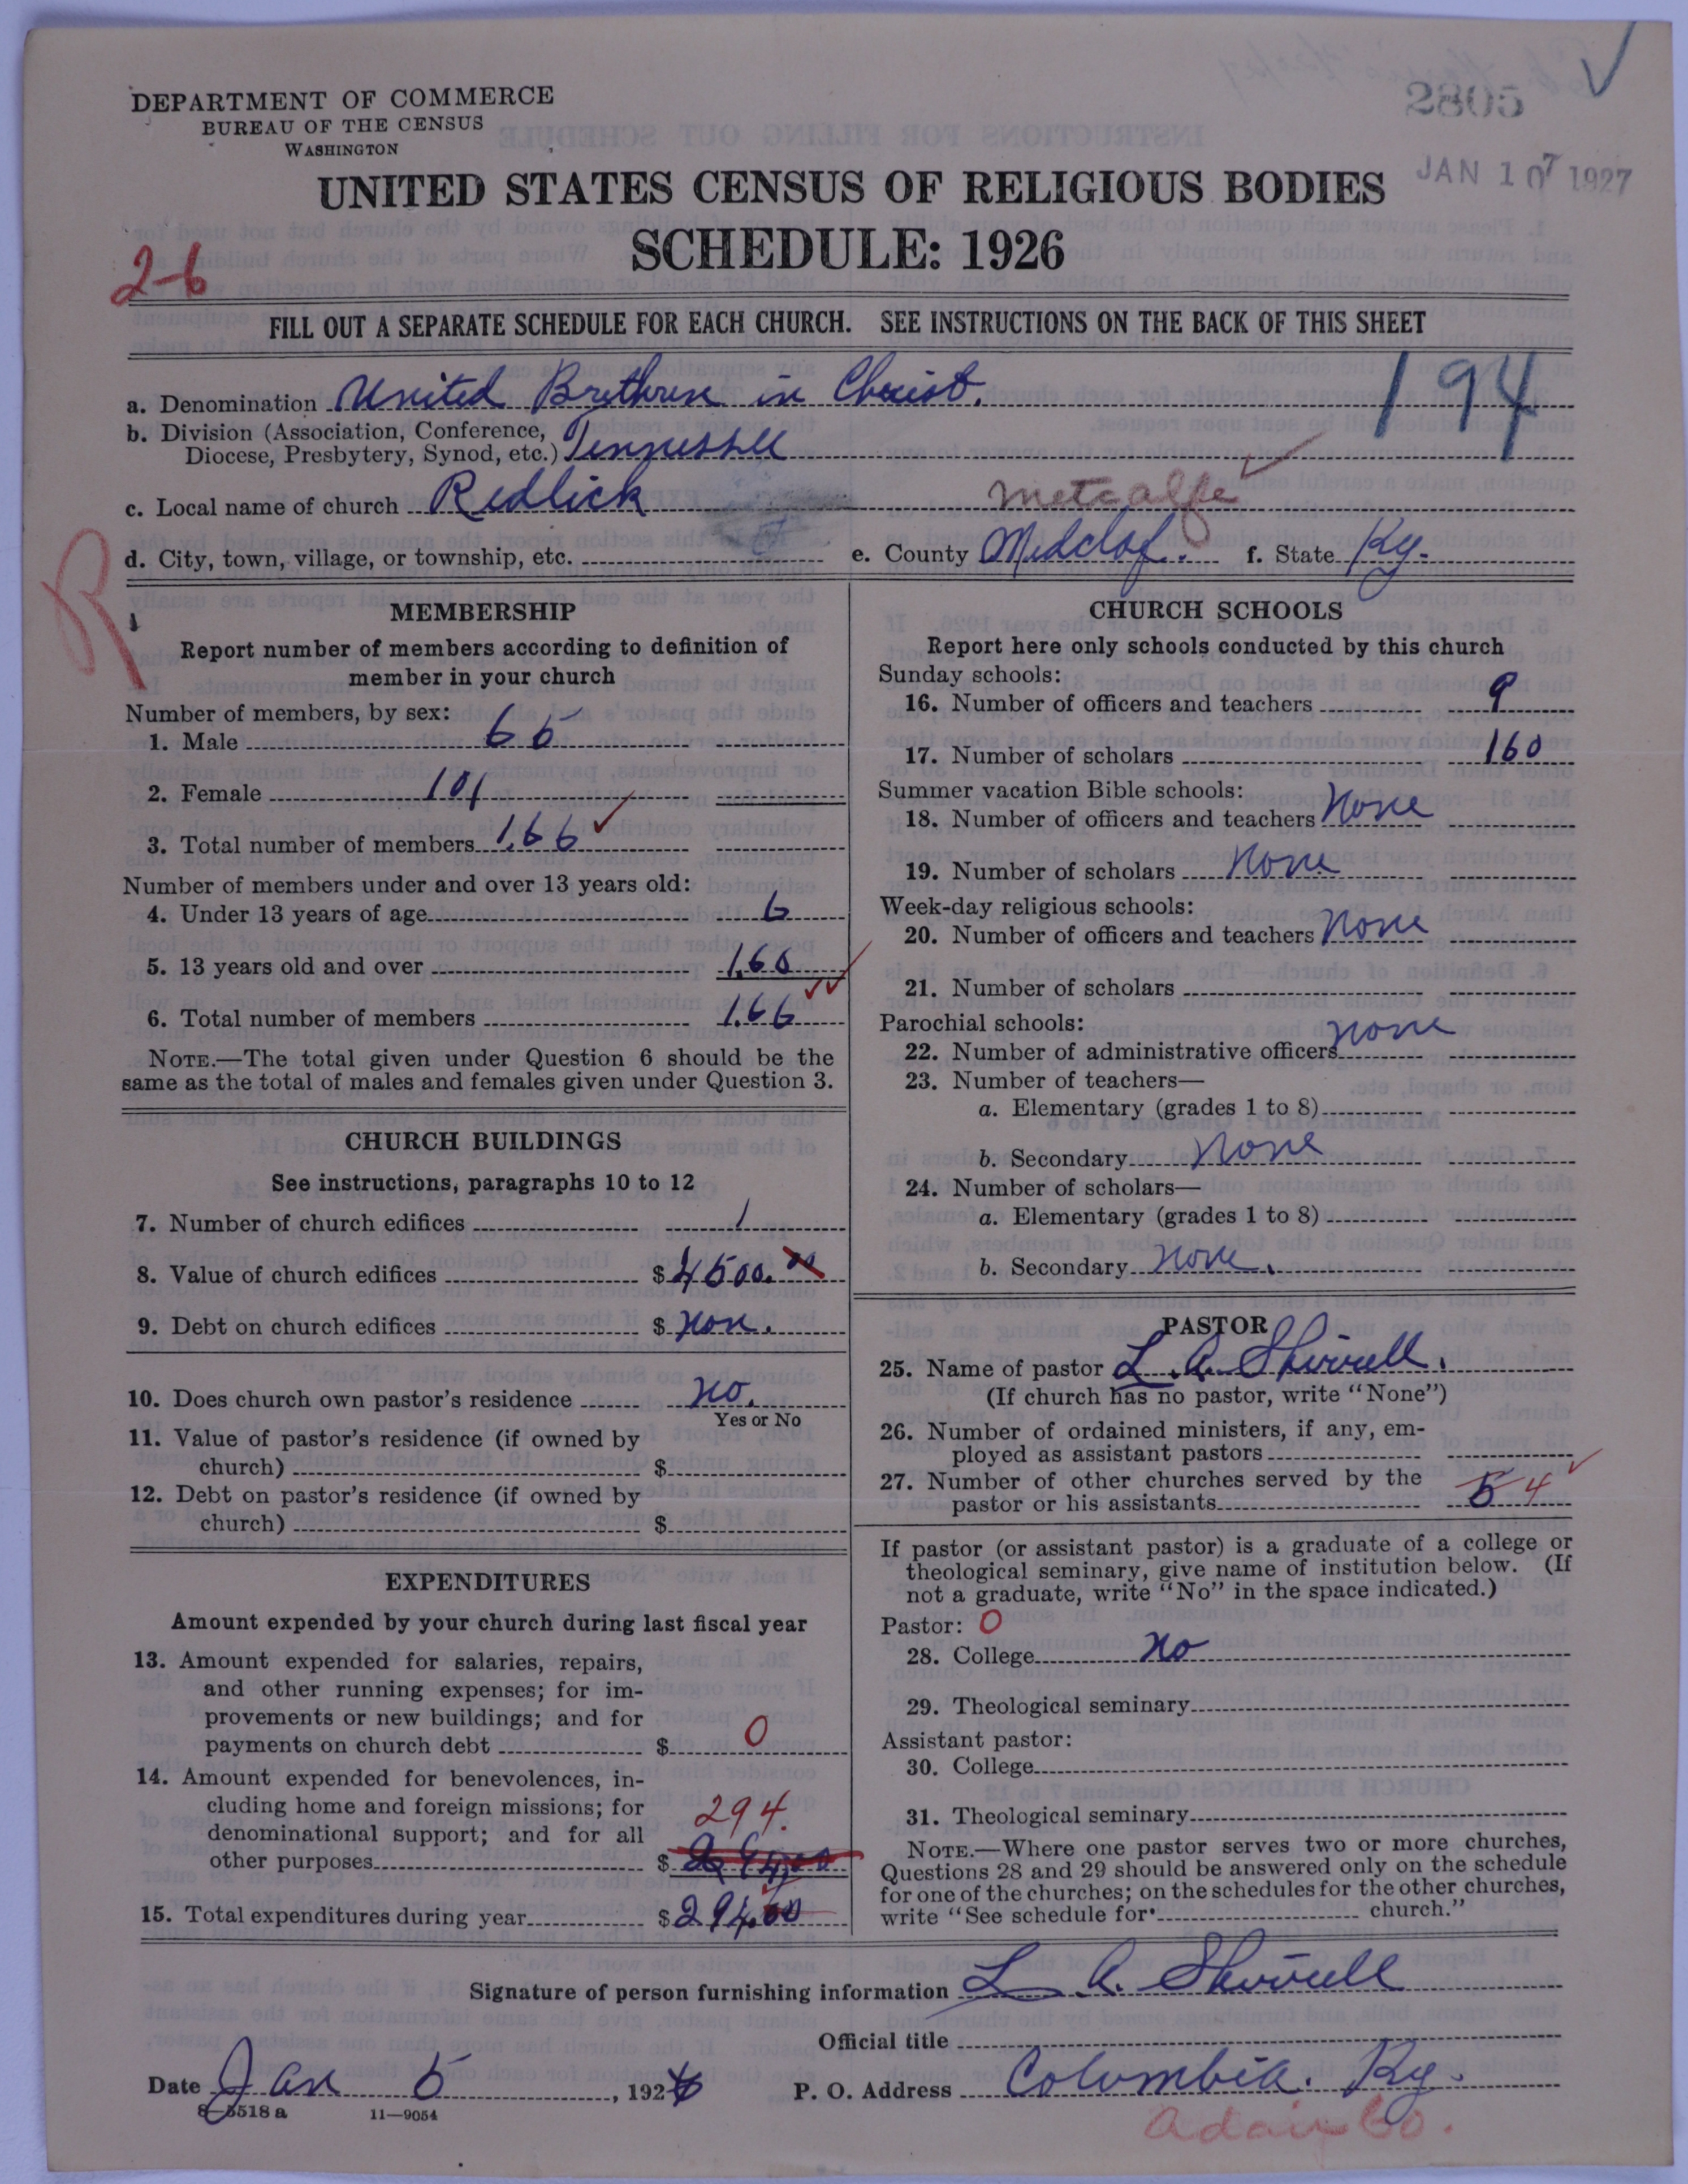 DEPARTMENT OF COMMERCE
BUREAU OF THE CENSUS
WASHINGTON
2805
JAN 10 7 1927
UNITED STATES CENSUS OF RELIGIOUS BODIES
SCHEDULE: 1926
2-6
FILL OUT A SEPARATE SCHEDULE FOR EACH CHURCH. SEE INSTRUCTIONS ON THE BACK OF THIS SHEET
a. Denomination United Brethren in Christ.
194
b. Division (Association, Conference,
Diocese, Presbytery, Synod, etc.) Tennessee
c. Local name of church Redlick
metcalfe
d. City, town, village, or township, etc.
e. County Medclof. f. State Ky.
R
MEMBERSHIP
Report number of members according to definition of
member in your church
Number of members, by sex:
1. Male 65
2. Female 101
3. Total number of members 166
Number of members under and over 13 years old:
4. Under 13 years of age 6
5. 13 years old and over 160
6. Total number of members 166
NOTE.—The total given under Question 6 should be the
same as the total of males and females given under Question 3.
CHURCH BUILDINGS
See instructions, paragraphs 10 to 12
7. Number of church edifices 1
8. Value of church edifices $4500.00
9. Debt on church edifices $ non.
10. Does church own pastor's residence no.
Yes or No
11. Value of pastor's residence (if owned by
church) $
12. Debt on pastor's residence (if owned by
church) $
EXPENDITURES
Amount expended by your church during last fiscal year
13. Amount expended for salaries, repairs,
and other running expenses; for im-
provements or new buildings; and for
payments on church debt $ 0
14. Amount expended for benevolences, in-
cluding home and foreign missions; for
denominational support; and for all
294.
other purposes $ 294.00
15. Total expenditures during year $294.00
CHURCH SCHOOLS
Report here only schools conducted by this church
Sunday schools:
16. Number of officers and teachers 9
17. Number of scholars 160
Summer vacation Bible schools:
18. Number of officers and teachers None
19. Number of scholars None
Week-day religious schools:
20. Number of officers and teachers None
21. Number of scholars
Parochial schools:
22. Number of administrative officers none
23. Number of teachers—
a. Elementary (grades 1 to 8)
b. Secondary None
24. Number of scholars—
a. Elementary (grades 1 to 8)
b. Secondary none.
PASTOR
25. Name of pastor L. A. Shirrell.
(If church has no pastor, write "None")
26. Number of ordained ministers, if any, em-
ployed as assistant pastors
27. Number of other churches served by the
pastor or his assistants 5 4
If pastor (or assistant pastor) is a graduate of a college or
theological seminary, give name of institution below. (If
not a graduate, write "No" in the space indicated.)
Pastor: 0
28. College no
29. Theological seminary
Assistant pastor:
30. College
31. Theological seminary
NOTE.—Where one pastor serves two or more churches,
Questions 28 and 29 should be answered only on the schedule
for one of the churches; on the schedules for the other churches,
write "See schedule for church."
Signature of person furnishing information L. A. Shirrell
Official title
Date Jan 5, 192
P. O. Address Columbia. Ky.
8—5518 a 11—9054
Adair Co.